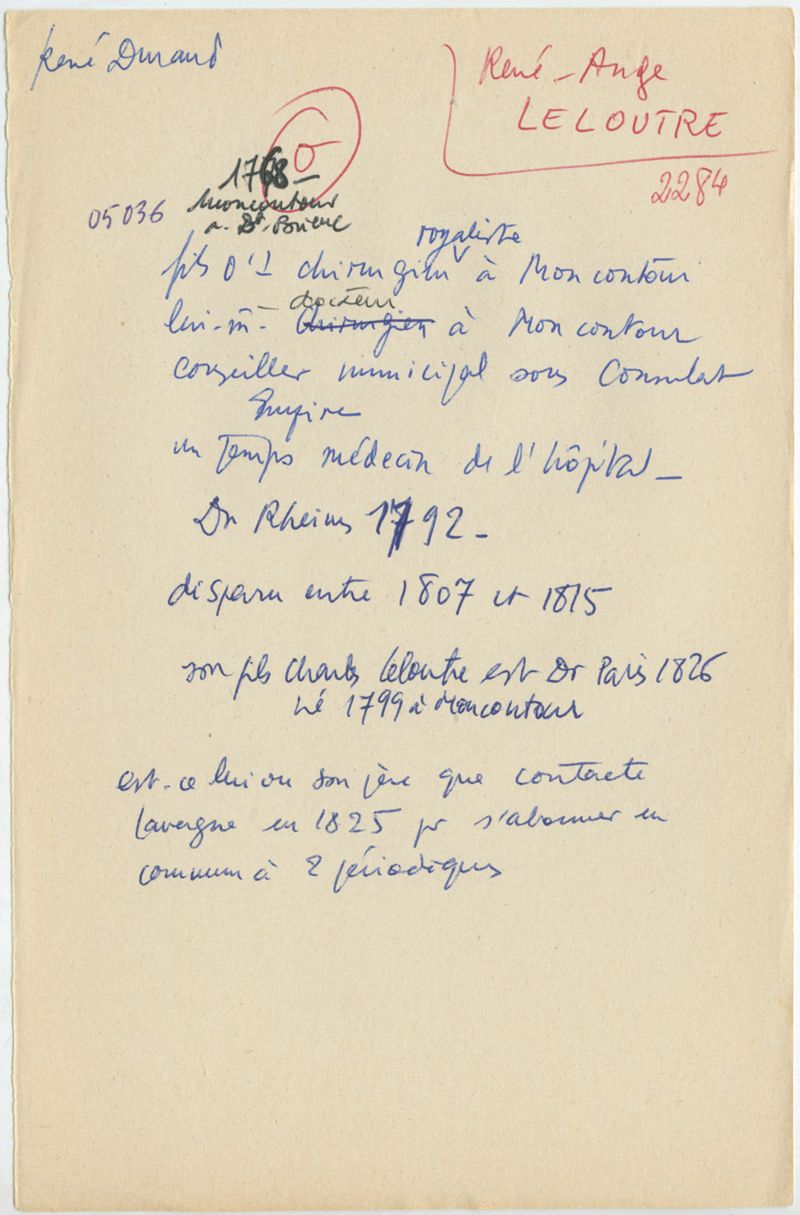 René Durand
René-Ange
LELOUTRE
2284
σ
1768-
Moncontour
a. St-Brieuc
05036
royaliste
fils d'1 chirurgien à Moncontour
docteur
lui-m- Chirurgien à Moncontour
conseiller municipal sous Consulat
Empire
un temps médecin de l'hôpital -
Dr Rheims 1792 -
disparu entre 1807 et 1815
son fils Charles Leloutre est Dr Paris 1826
né 1799 à Moncontour
est-ce lui ou son père que contacte
Lavergne en 1825 pr s'abonner en
commun à 2 périodiques